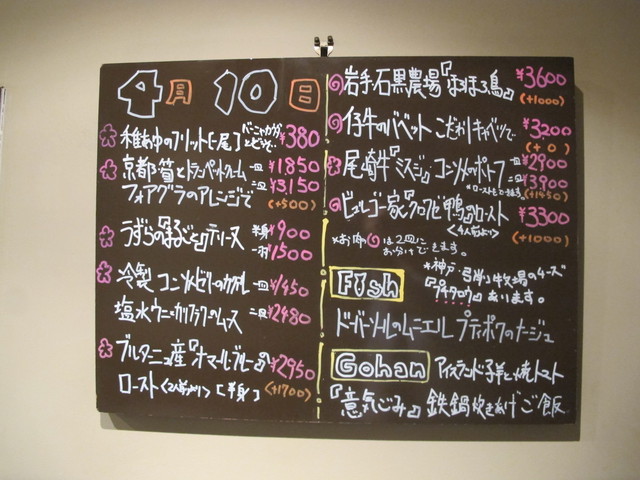 4月10日
稚あゆのフリット[一尾] バーニャカウダとどうぞ ¥380
京都筍とトランペットクリーム 一皿 ¥1850
フォアグラのアレンジで 二皿 ¥3,150
(+500)
うずらの『まるごと』テリーヌ 半身 ¥900
一羽 ¥1500
冷製 コンソメゼリーのカクテル 一皿 ¥1450
塩水ウニ・カリフラワーのムース 二皿 ¥2480
ブルターニュ産『オマールブルー』の ¥2950
ロースト <2人前より> [半身] (+1700)
岩手石黒農場『ほろほろ鳥』 ¥3600
(+1000)
仔牛のバベット こだわりキャベツで ¥3200
(+0)
尾崎牛『ミスジ』コンソメのポトフ 一皿 ¥2900
*ローストもできます 二皿 3,900
(+1450)
ビュルゴー家『クロワゼ鴨』のロースト ¥3300
<4人前より> (+1000)
*お肉 は2皿に
お分けできます。
*神戸・弓削牧場のチーズ
あります。
Fish
ドーバーソールのムニエル プティポワのナージュ
Gohan アイスランド子羊と焼トマト
『意気ごみ』鉄鍋炊きあげご飯